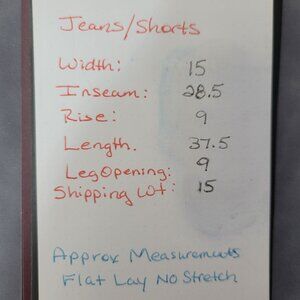 Jeans/Shorts
Width: 15
Inseam: 28.5
Rise: 9
Length. 37.5
Leg Opening: 9
Shipping Wt: 15
Approx Measurements
Flat Lay No Stretch